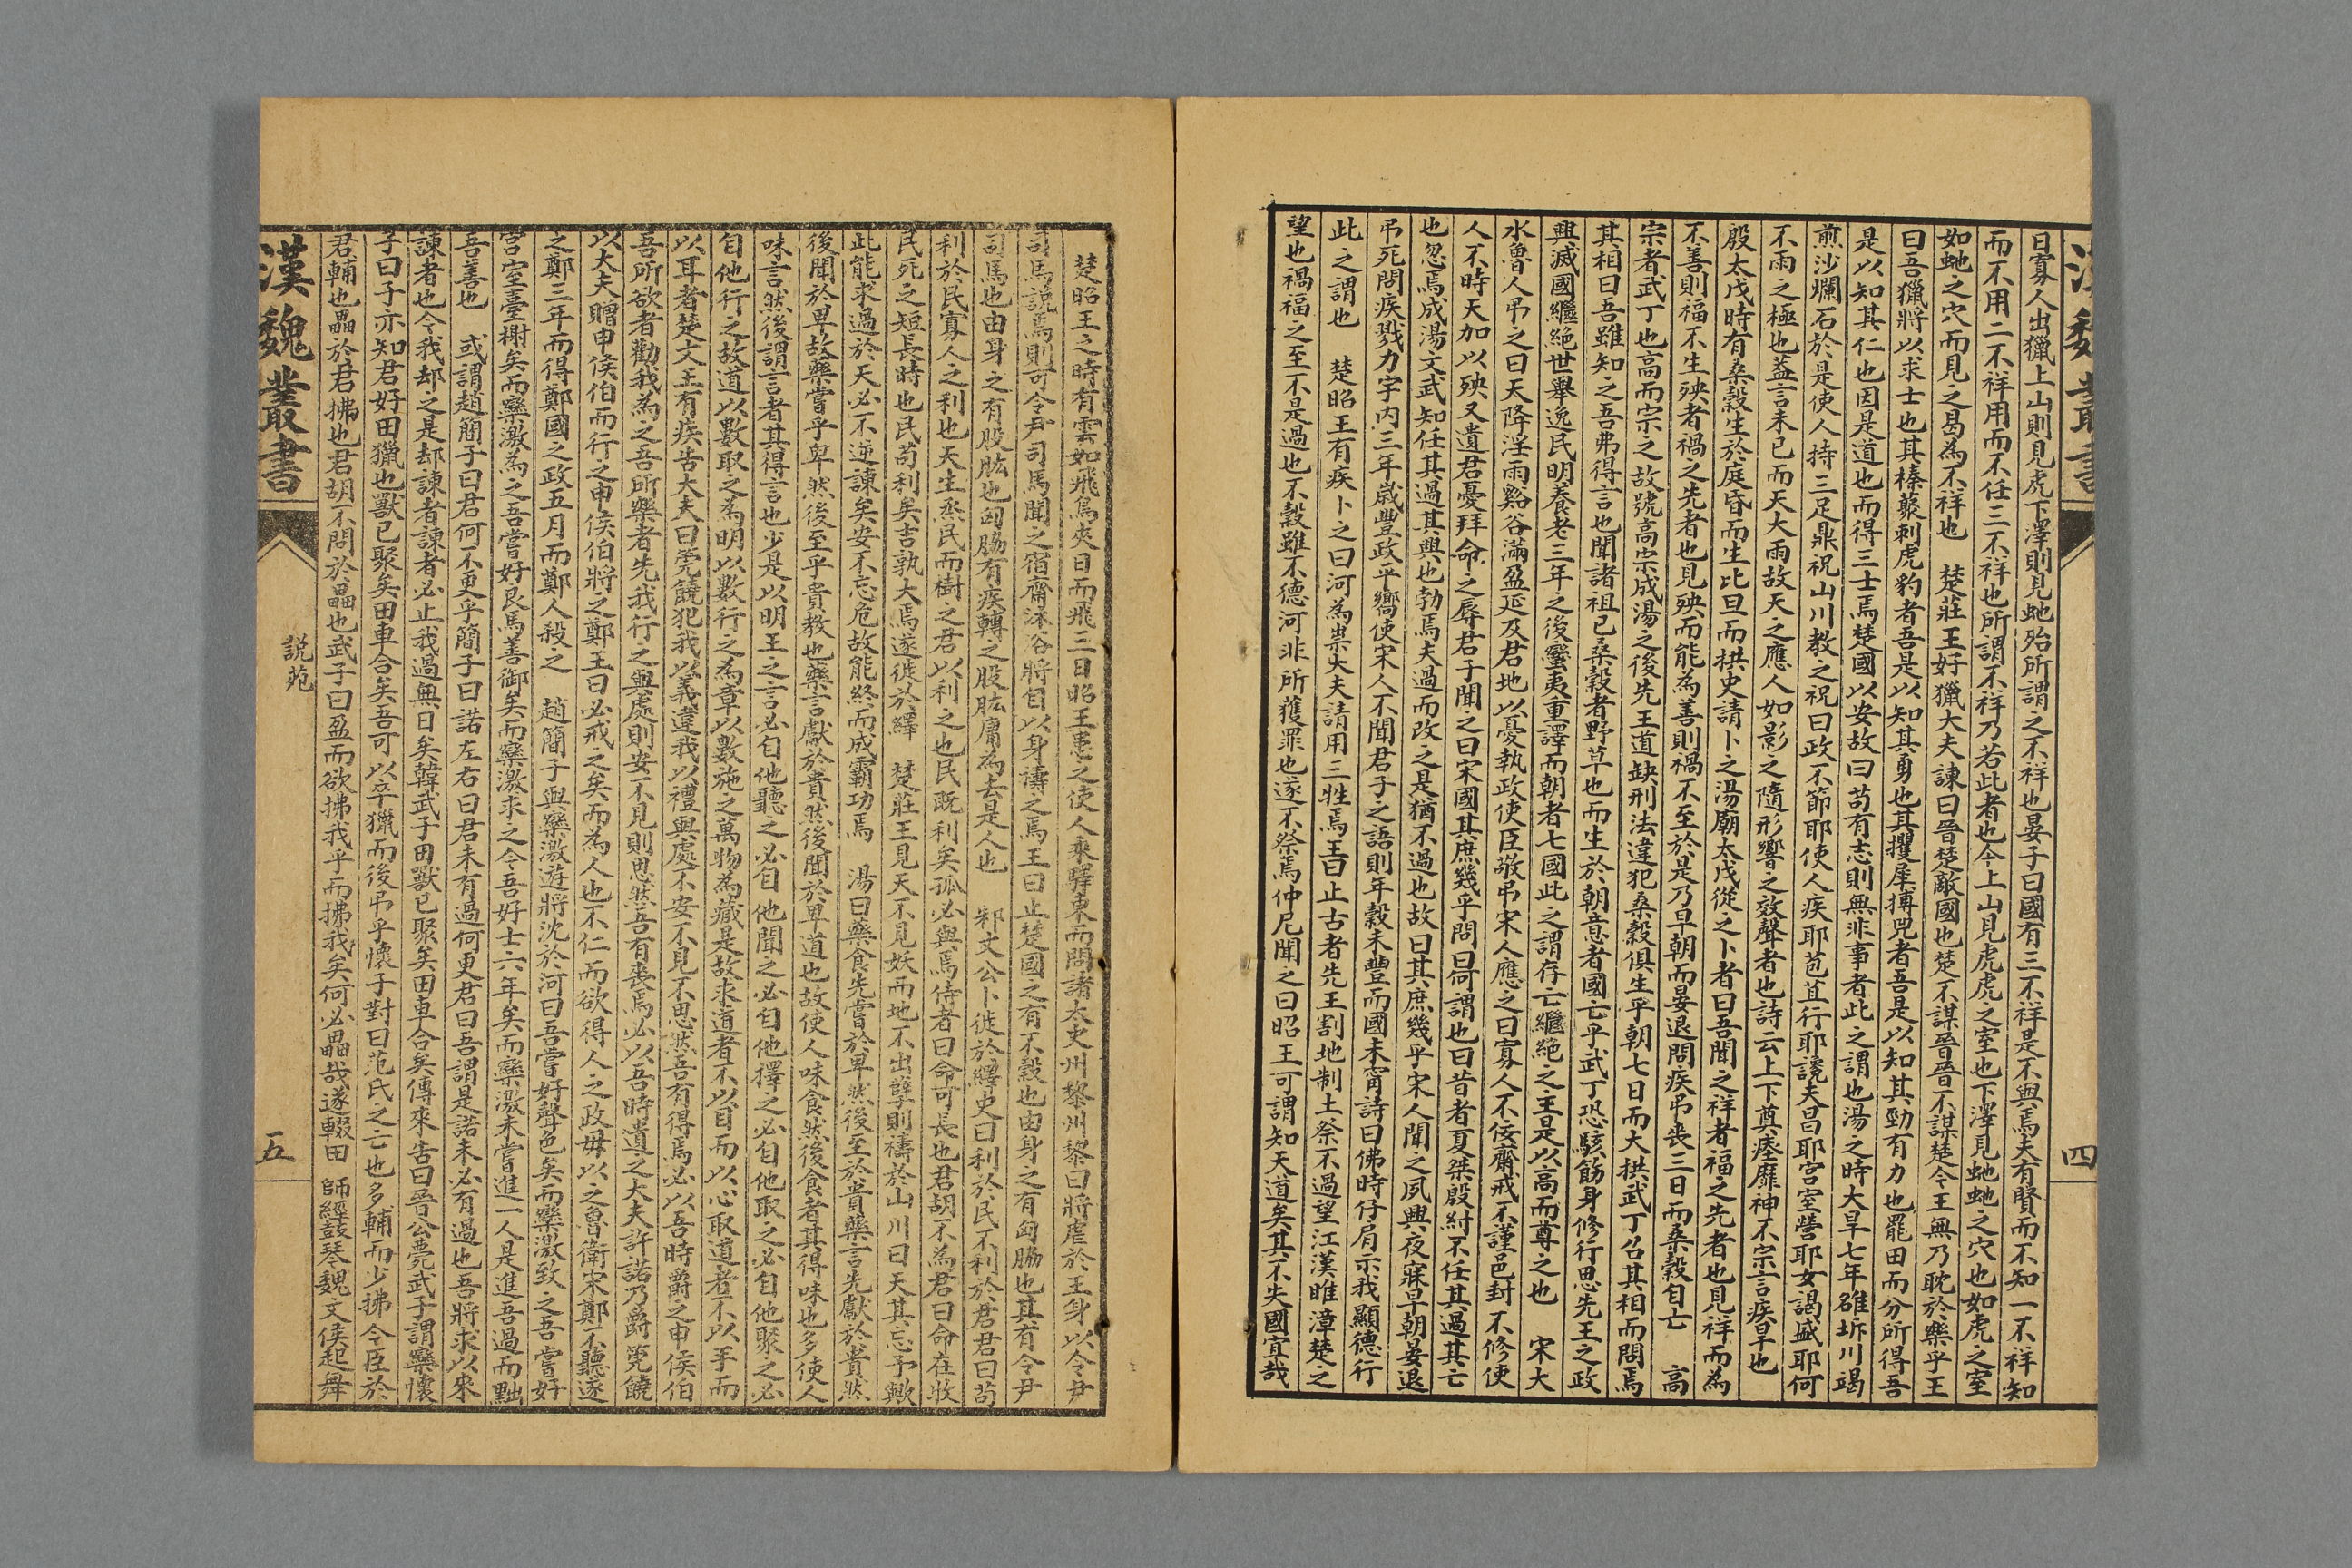 四
曰寡人出獵上山則見虎下澤則見虵殆所謂之不祥也晏子曰國有三不祥是不與焉夫有賢而不知一不祥知
而不用二不祥用而不任三不祥也所謂不祥乃若此者也今上山見虎虎之室也下澤見虵虵之穴也如虎之室
如虵之穴而見之曷為不祥也　楚莊王好獵大夫諫曰晉楚敵國也楚不謀晉晉不謀楚今王無乃耽於樂乎王
曰吾獵將以求士也其榛藂刺虎豹者吾是以知其勇也其攫犀搏兕者吾是以知其勁有力也罷田而分所得吾
是以知其仁也因是道也而得三士焉楚國以安故曰苟有志則無非事者此之謂也湯之時大旱七年雒坼川竭
煎沙爛石於是使人持三足鼎祝山川教之祝曰政不節耶使人疾耶苞苴行耶讒夫昌耶宮室營耶女謁盛耶何
不雨之極也蓋言未已而天大雨故天之應人如影之隨形響之效聲者也詩云上下奠瘞靡神不宗言疾旱也
殷太戊時有桑穀生於庭昏而生比旦而拱史請卜之湯廟太戊從之卜者曰吾聞之祥者福之先者也見祥而為
不善則福不生殃者禍之先者也見殃而能為善則禍不至於是乃早朝而晏退問疾弔喪三日而桑穀自亡　高
宗者武丁也高而宗之故號高宗成湯之後先王道缺刑法違犯桑穀俱生乎朝七日而大拱武丁召其相而問焉
其相曰吾雖知之吾弗得言也聞諸祖已桑穀者野草也而生於朝意者國亡乎武丁恐駭飭身修行思先王之政
興滅國繼絕世舉逸民明養老三年之後蠻夷重譯而朝者七國此之謂存亡繼絕之主是以高而尊之也　宋大
水魯人弔之曰天降淫雨谿谷滿盈延及君地以憂執政使臣敬弔宋人應之曰寡人不佞齋戒不謹邑封不修使
人不時天加以殃又遺君憂拜命之辱君子聞之曰宋國其庶幾乎問曰何謂也曰昔者夏桀殷紂不任其過其亡
也忽焉成湯文武知任其過其興也勃焉夫過而改之是猶不過也故曰其庶幾乎宋人聞之夙興夜寐早朝晏退
弔死問疾戮力宇內三年歲豐政平嚮使宋人不聞君子之語則年穀未豐而國未甯詩曰佛時仔肩示我顯德行
此之謂也　楚昭王有疾卜之曰河為祟大夫請用三牲焉王曰止古者先王割地制土祭不過望江漢睢漳楚之
望也禍福之至不是過也不穀雖不德河非所獲罪也遂不祭焉仲尼聞之曰昭王可謂知天道矣其不失國宜哉
楚昭王之時有雲如飛鳥夾日而飛三日昭王患之使人乘驛東而問諸太史州黎州黎曰將虐於王身以令尹
司馬說焉則可令尹司馬聞之宿齋沐浴將自以身禱之焉王曰止楚國之有不穀也由身之有匈脇也其有令尹
司馬也由身之有股肱也匈脇有疾轉之股肱庸為去是人也　邾文公卜徙於繹史曰利於民不利於君君曰苟
利於民寡人之利也天生烝民而樹之君以利之也民既利矣孤必與焉侍者曰命可長也君胡不為君曰命在牧
民死之短長時也民苟利矣吉孰大焉遂徙於繹　楚莊王見天不見妖而地不出孽則禱於山川曰天其忘予歟
此能求過於天必不逆諫矣安不忘危故能終而成霸功焉　湯曰藥食先嘗於卑然後至於貴藥言先獻於貴然
後聞於卑故藥嘗乎卑然後至乎貴教也藥言獻於貴然後聞於卑道也故使人味食然後食者其得味也多使人
味言然後謂言者其得言也少是以明王之言必自他聽之必自他聞之必自他擇之必自他取之必自他聚之必
自他行之故道以數取之為明以數行之為章以數施之萬物為藏是故求道者不以目而以心取道者不以手而
以耳者楚文王有疾告大夫曰筦饒犯我以義違我以禮與處不安不見不思然吾有得焉必以吾時爵之申侯伯
吾所欲者勸我為之吾所樂者先我行之與處則安不見則思然吾有喪焉必以吾時遣之大夫許諾乃爵筦饒
以大夫贈申侯伯而行之申侯伯將之鄭王曰必戒之矣而為人也不仁而欲得人之政毋以之魯衛宋鄭不聽遂
之鄭三年而得鄭國之政五月而鄭人殺之　趙簡子與欒激遊將沈於河曰吾嘗好聲色矣而欒激致之吾嘗好
宮室臺榭矣而欒激為之吾嘗好良馬善御矣而欒激求之今吾好士六年矣而欒激未嘗進一人是進吾過而黜
吾善也　或謂趙簡子曰君何不更乎簡子曰諾左右曰君未有過何更君曰吾謂是諾未必有過也吾將求以來
諫者也今我却之是却諫者諫者必止我過無日矣韓武子田獸已聚矣田車合矣傳來告曰晉公薨武子謂欒懷
子曰子亦知君好田獵也獸已聚矣田車合矣吾可以卒獵而後弔乎懷子對曰范氏之亡也多輔而少拂今臣於
君輔也畾於君拂也君胡不問於畾也武子曰盈而欲拂我乎而拂我矣何必畾哉遂輟田　師經鼓琴魏文侯起舞
漢魏叢書　說苑　五